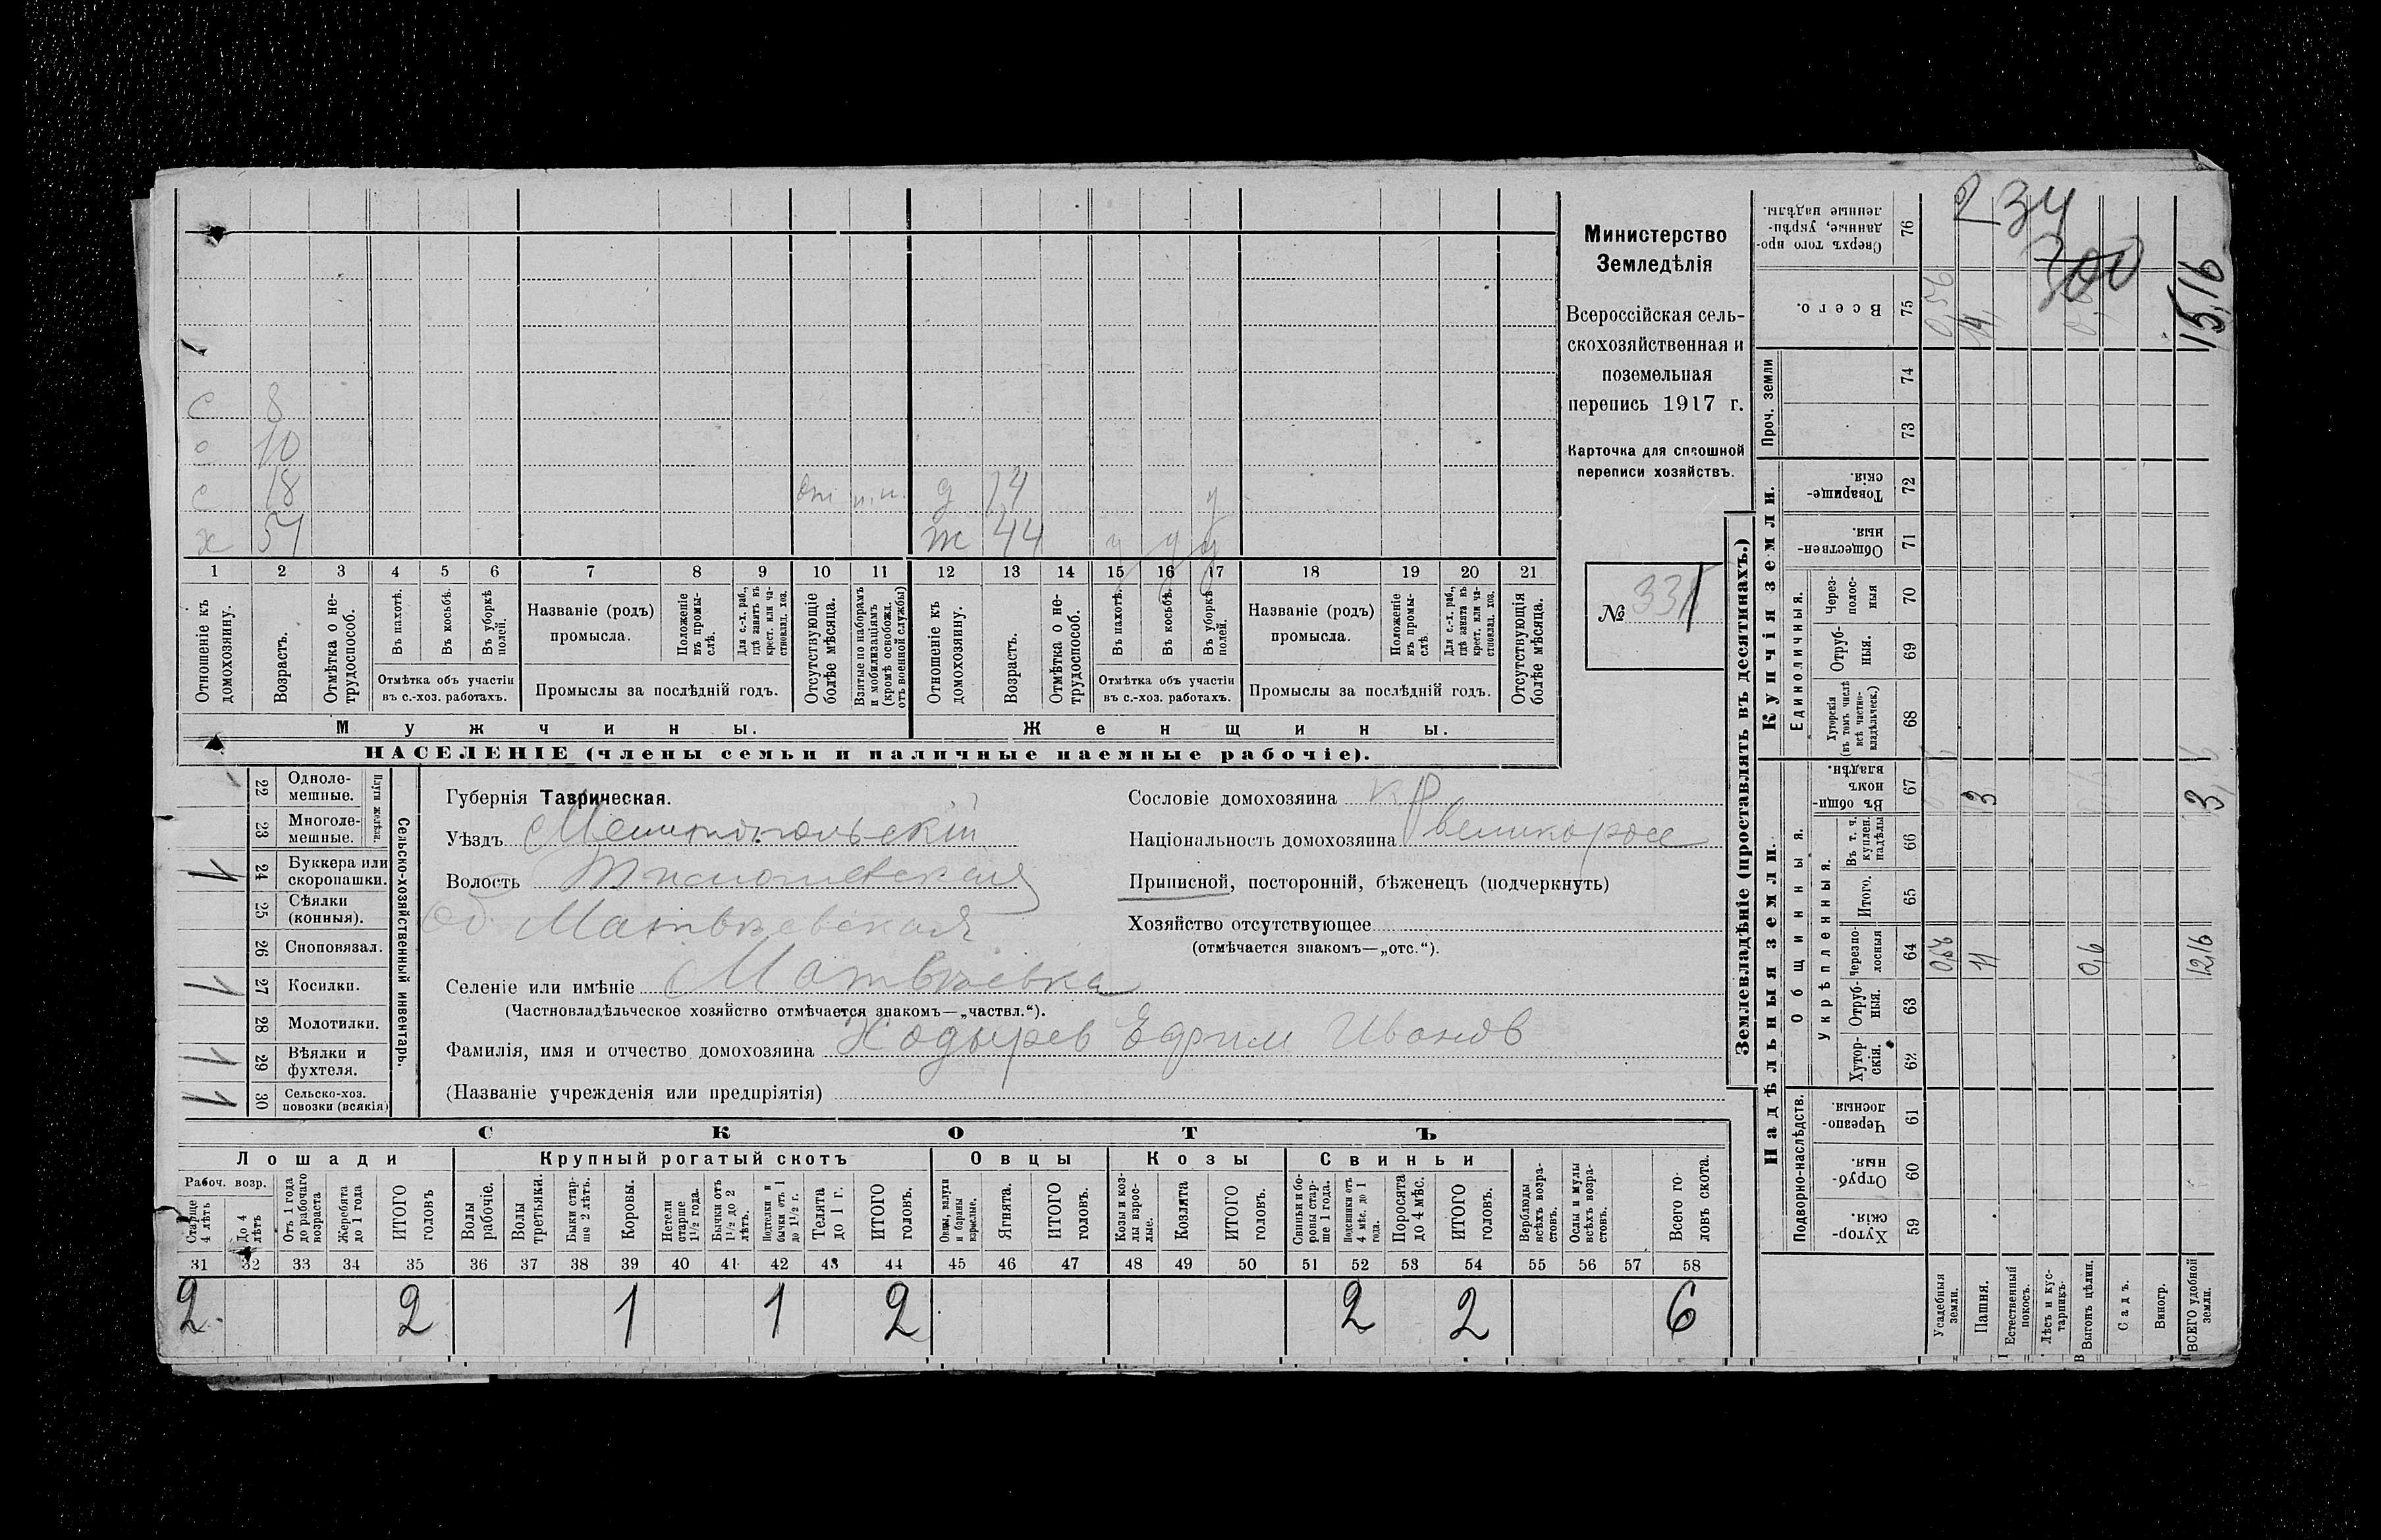 Министерство
Земледѣлія
Всероссійская сель-
скохозяйственная и
поземельная
перепись 1917 г.
Карточка для сплошной
переписи хозяйствъ.
№ 331
с 8
с 10
с 18 от п.п. д 14 у
х 51 ж 44 у у у
1 2 3 4 5 6 7 8 9 10 11 12 13 14 15 16 17 18 19 20 21
Отношеніе къ домохозяину.
Возрастъ.
Отмѣтка о не-трудоспособ.
Въ пахотѣ.
Въ косьбѣ.
Въ уборкѣ полей.
Отмѣтка объ участіи
въ с.-хоз. работахъ.
Названіе (родъ)
промысла.
Положеніе въ промы-слѣ.
Для с.-х. раб., гдѣ занятъ въ крест. или ча-стновлад. хоз.
Промыслы за послѣдній годъ.
Отсутствующіе болѣе мѣсяца.
Взятые по наборамъ и мобилизаціямъ (кромѣ освобожд. отъ военной службы)
Отношеніе къ домохозяину.
Возрастъ.
Отмѣтка о не-трудоспособ.
Въ пахотѣ.
Въ косьбѣ.
Въ уборкѣ полей.
Отмѣтка объ участіи
въ с.-хоз. работахъ.
Названіе (родъ)
промысла.
Положеніе въ промы-слѣ
Для с.-х. раб., гдѣ занята въ крест. или ча-стновлад. хоз.
Промыслы за послѣдній годъ.
Отсутствующія болѣе мѣсяца.
Мужчины. Женщины.
НАСЕЛЕНІЕ (члены семьи и наличные наемные рабочіе).
Сельско-хозяйственный инвентарь.
Плуги желѣз.
22 Одноле-мешные.
23 Многоле-мешные.
24 Буккера или скоропашки.
25 Сѣялки (конныя).
26 Сноповязал.
27 Косилки.
28 Молотилки.
29 Вѣялки и фухтеля.
30 Сельско-хоз. повозки (всякія)
Губернія Таврическая.
Уѣздъ Мелитопольскій
Волость Тимошевская
Об. Матвѣевская
Селеніе или имѣніе Матвѣевка
(Частновладѣльческое хозяйство отмѣчается знакомъ—„частвл.“).
Фамилія, имя и отчество домохозяина Ходырев Ефим Иванов
(Названіе учрежденія или предпріятія)
Сословіе домохозяина кр
Національность домохозяина великоросс
Приписной, посторонній, бѣженецъ (подчеркнуть)
Хозяйство отсутствующее
(отмѣчается знакомъ—„отс.“).
СКОТЪ
Лошади Крупный рогатый скотъ Овцы Козы Свиньи
Рабоч. возр.
Старше 4 лѣтъ
До 4 лѣтъ
Отъ 1 года до рабочаго возраста
Жеребята до 1 года
ИТОГО головъ
Волы рабочіе.
Волы третьяки.
Быки стар-ше 2 лѣтъ.
Коровы.
Нетели старше 1½ года.
Бычки отъ 1½ до 2 лѣтъ.
Подтелки и бычки отъ 1 до 1½ г.
Телята до 1 г.
ИТОГО головъ.
Овцы, валухи и бараны взрослые.
Ягнята.
ИТОГО головъ.
Козы и коз-лы взрос-лые.
Козлята
ИТОГО головъ.
Свиньи и бо-ровы стар-ше 1 года.
Подсвинки отъ 4 мѣс. до 1 года.
Поросята до 4 мѣс.
ИТОГО головъ.
Верблюды всѣхъ возра-стовъ.
Ослы и мулы всѣхъ возра-стовъ.
Всего го-ловъ скота.
31 32 33 34 35 36 37 38 39 40 41 42 43 44 45 46 47 48 49 50 51 52 53 54 55 56 57 58
2 2 1 1 2 2 2 6
Землевладѣніе (проставлять въ десятинахъ.)
Надѣльныя земли.
Купчія земли.
Проч. земли
Подворно-наслѣдств.
Общинныя.
Укрѣпленныя.
Единоличныя.
59 Хутор-скія.
60 Отруб-ныя.
61 Черезпо-лосныя.
62 Хутор-скія.
63 Отруб-ныя.
64 Черезпо-лосныя
65 Итого.
66 Въ т. ч. куплен. надѣлы
67 Въ общи-номъ владѣн.
68 Хуторскія (въ томъ числѣ всѣ частно-владѣльческ.)
69 Отруб-ныя.
70 Через-полос-ныя
71 Обществен-ныя.
72 Товарище-скія.
73
74
75 Всего.
76 Сверхъ того про-данные, укрѣп-ленные надѣлы.
Усадебныя земли.
Пашня.
Естественный покосъ.
Лѣсъ и кус-тарникъ.
Выгонъ цѣлин.
Садъ.
Виногр.
ВСЕГО удобной земли.
11 0,6 12,16
3 3
0,56 14
15,16
234
300